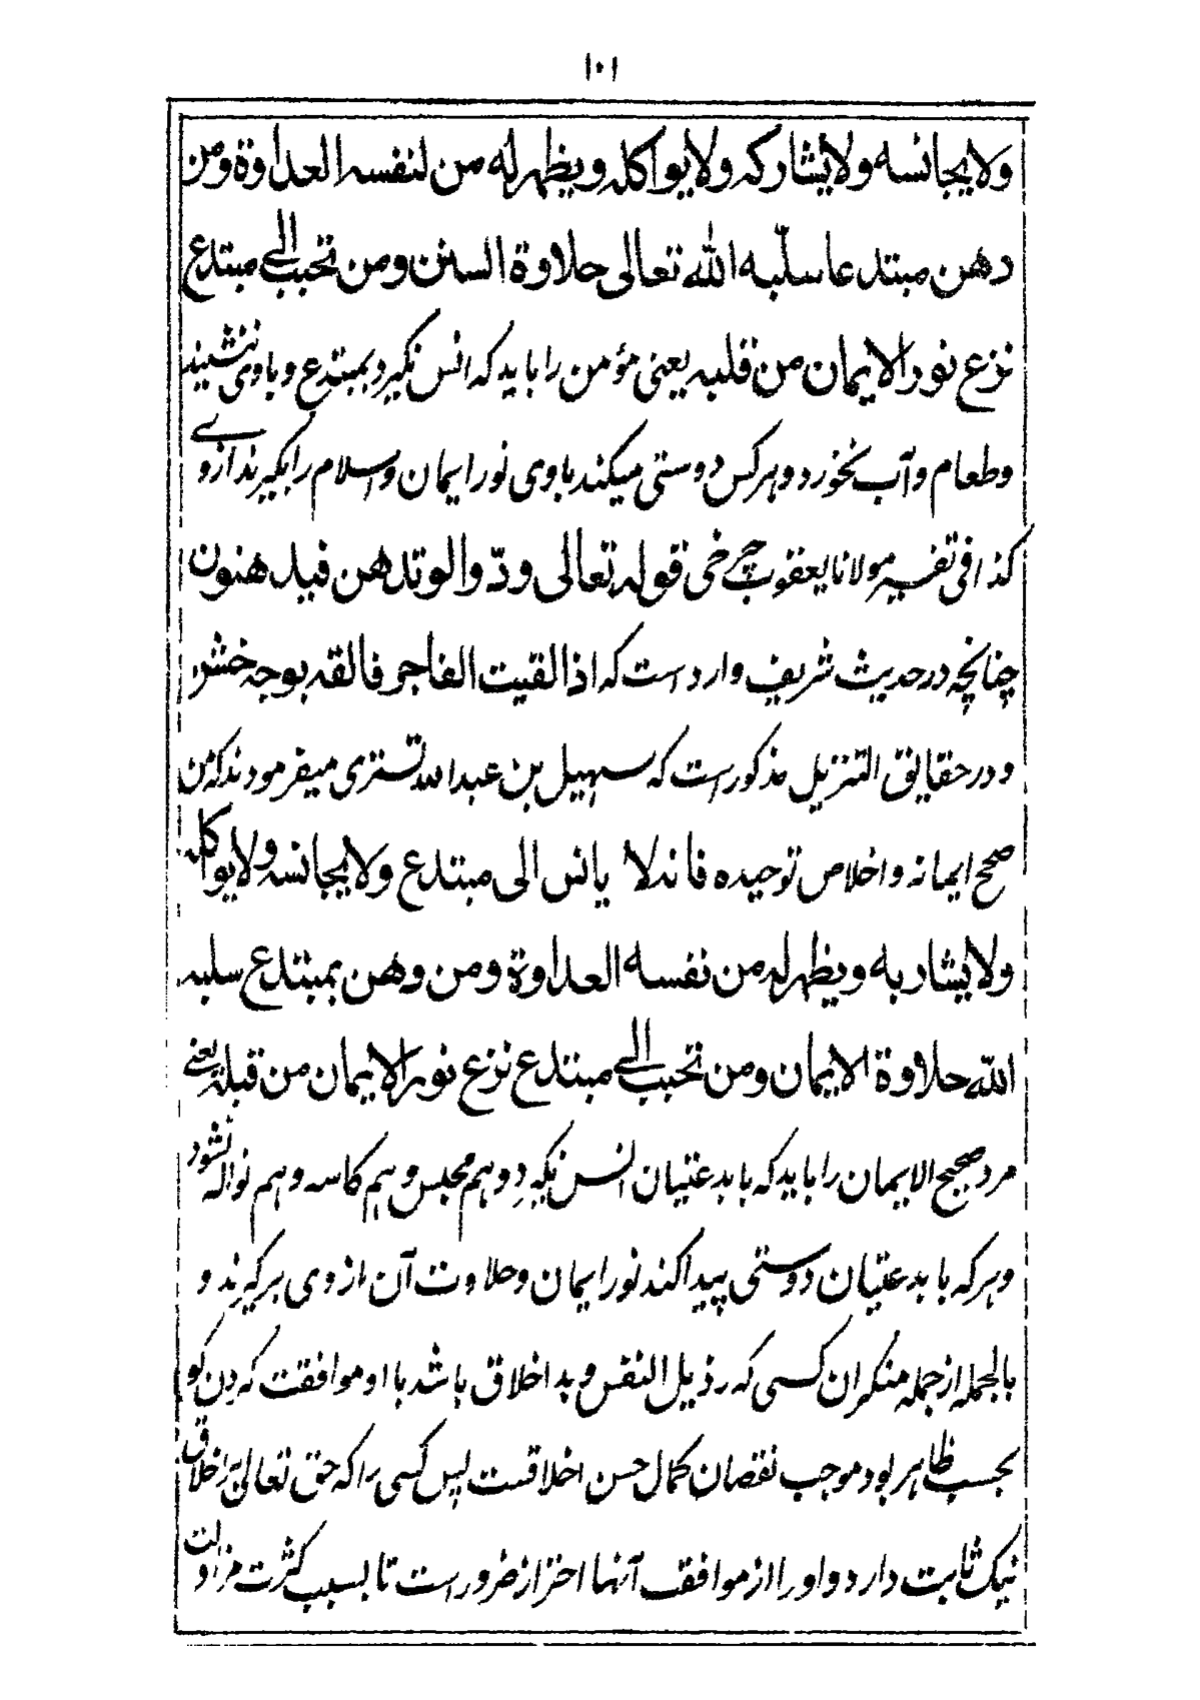 ۱۰۱
ولا يجانسه ولا يشاركه ولا يواكله ويظهر له من لنفسه العداوة ومن
دهن مبتدعا سلّبه الله تعالى حلاوة السنن ومن تحبب الى مبتدع
نزع نور الايمان من قلبه یعنی مؤمن را باید که انس نگیرد بمبتدع و باوی ننشیند
وطعام وآب نخورد و هر کس دوستی میکند باوی نور ایمان و اسلام را بگیرند از وے
کذا فی تفسیر مولانا یعقوب چرخی قوله تعالى ودّوا لو تدهن فيدهنون
چنانچه در حدیث شریف وارد است که اذا لقيت الفاجر فالقه بوجه خشن
و در حقایق التنزیل مذکور است که سهیل بن عبدالله تستری میفرمودند که من
صحح ایمانه و اخلاص توحیده فانه لا يانس الى مبتدع ولا يجانسه ولا يواكله
ولا يشاربه ويظهر له من نفسه العداوة ومن وهن بمبتدع سلبه
الله حلاوة الايمان ومن تحبب الى مبتدع نزع نور الايمان من قبله یعنے
مرد صحیح الایمان را باید که با بدعتیان انس نگیرد و هم مجلس و هم کاسه و هم نواله نشود
و هر که با بدعتیان دوستی پیدا کند نور ایمان و حلاوت آن از وی برگیرند و
بالجمله از جمله منکران کسی که رذیل النفس و بد اخلاق باشد با او موافقت کردن گو
بحسب ظاهر بود موجب نقصان کمال حسن اخلاقست پس کسی را که حق تعالی بر اخلاق
نیک ثابت دارد و او را از موافقت آنها احتراز ضرور است تا بسبب کثرت مزاولت